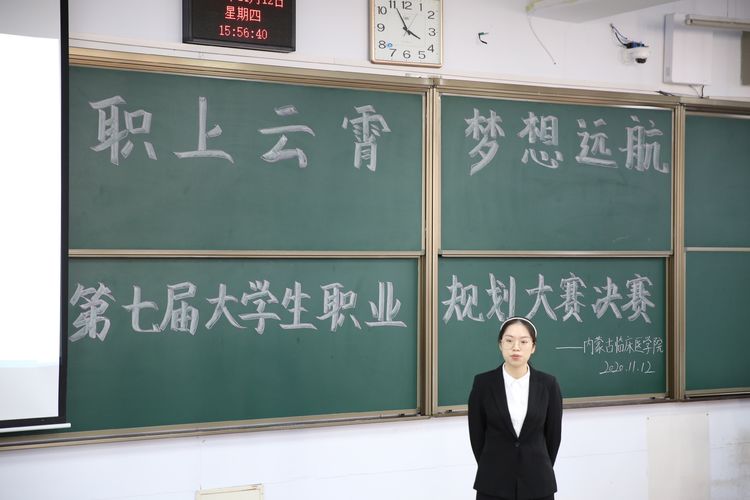 月12日
星期四
15:56:40
12 1 2 3 4 5 6 7 8 9 10 11
职上云霄 梦想远航
第七届大学生职业规划大赛决赛
——内蒙古临床医学院
2020.11.12